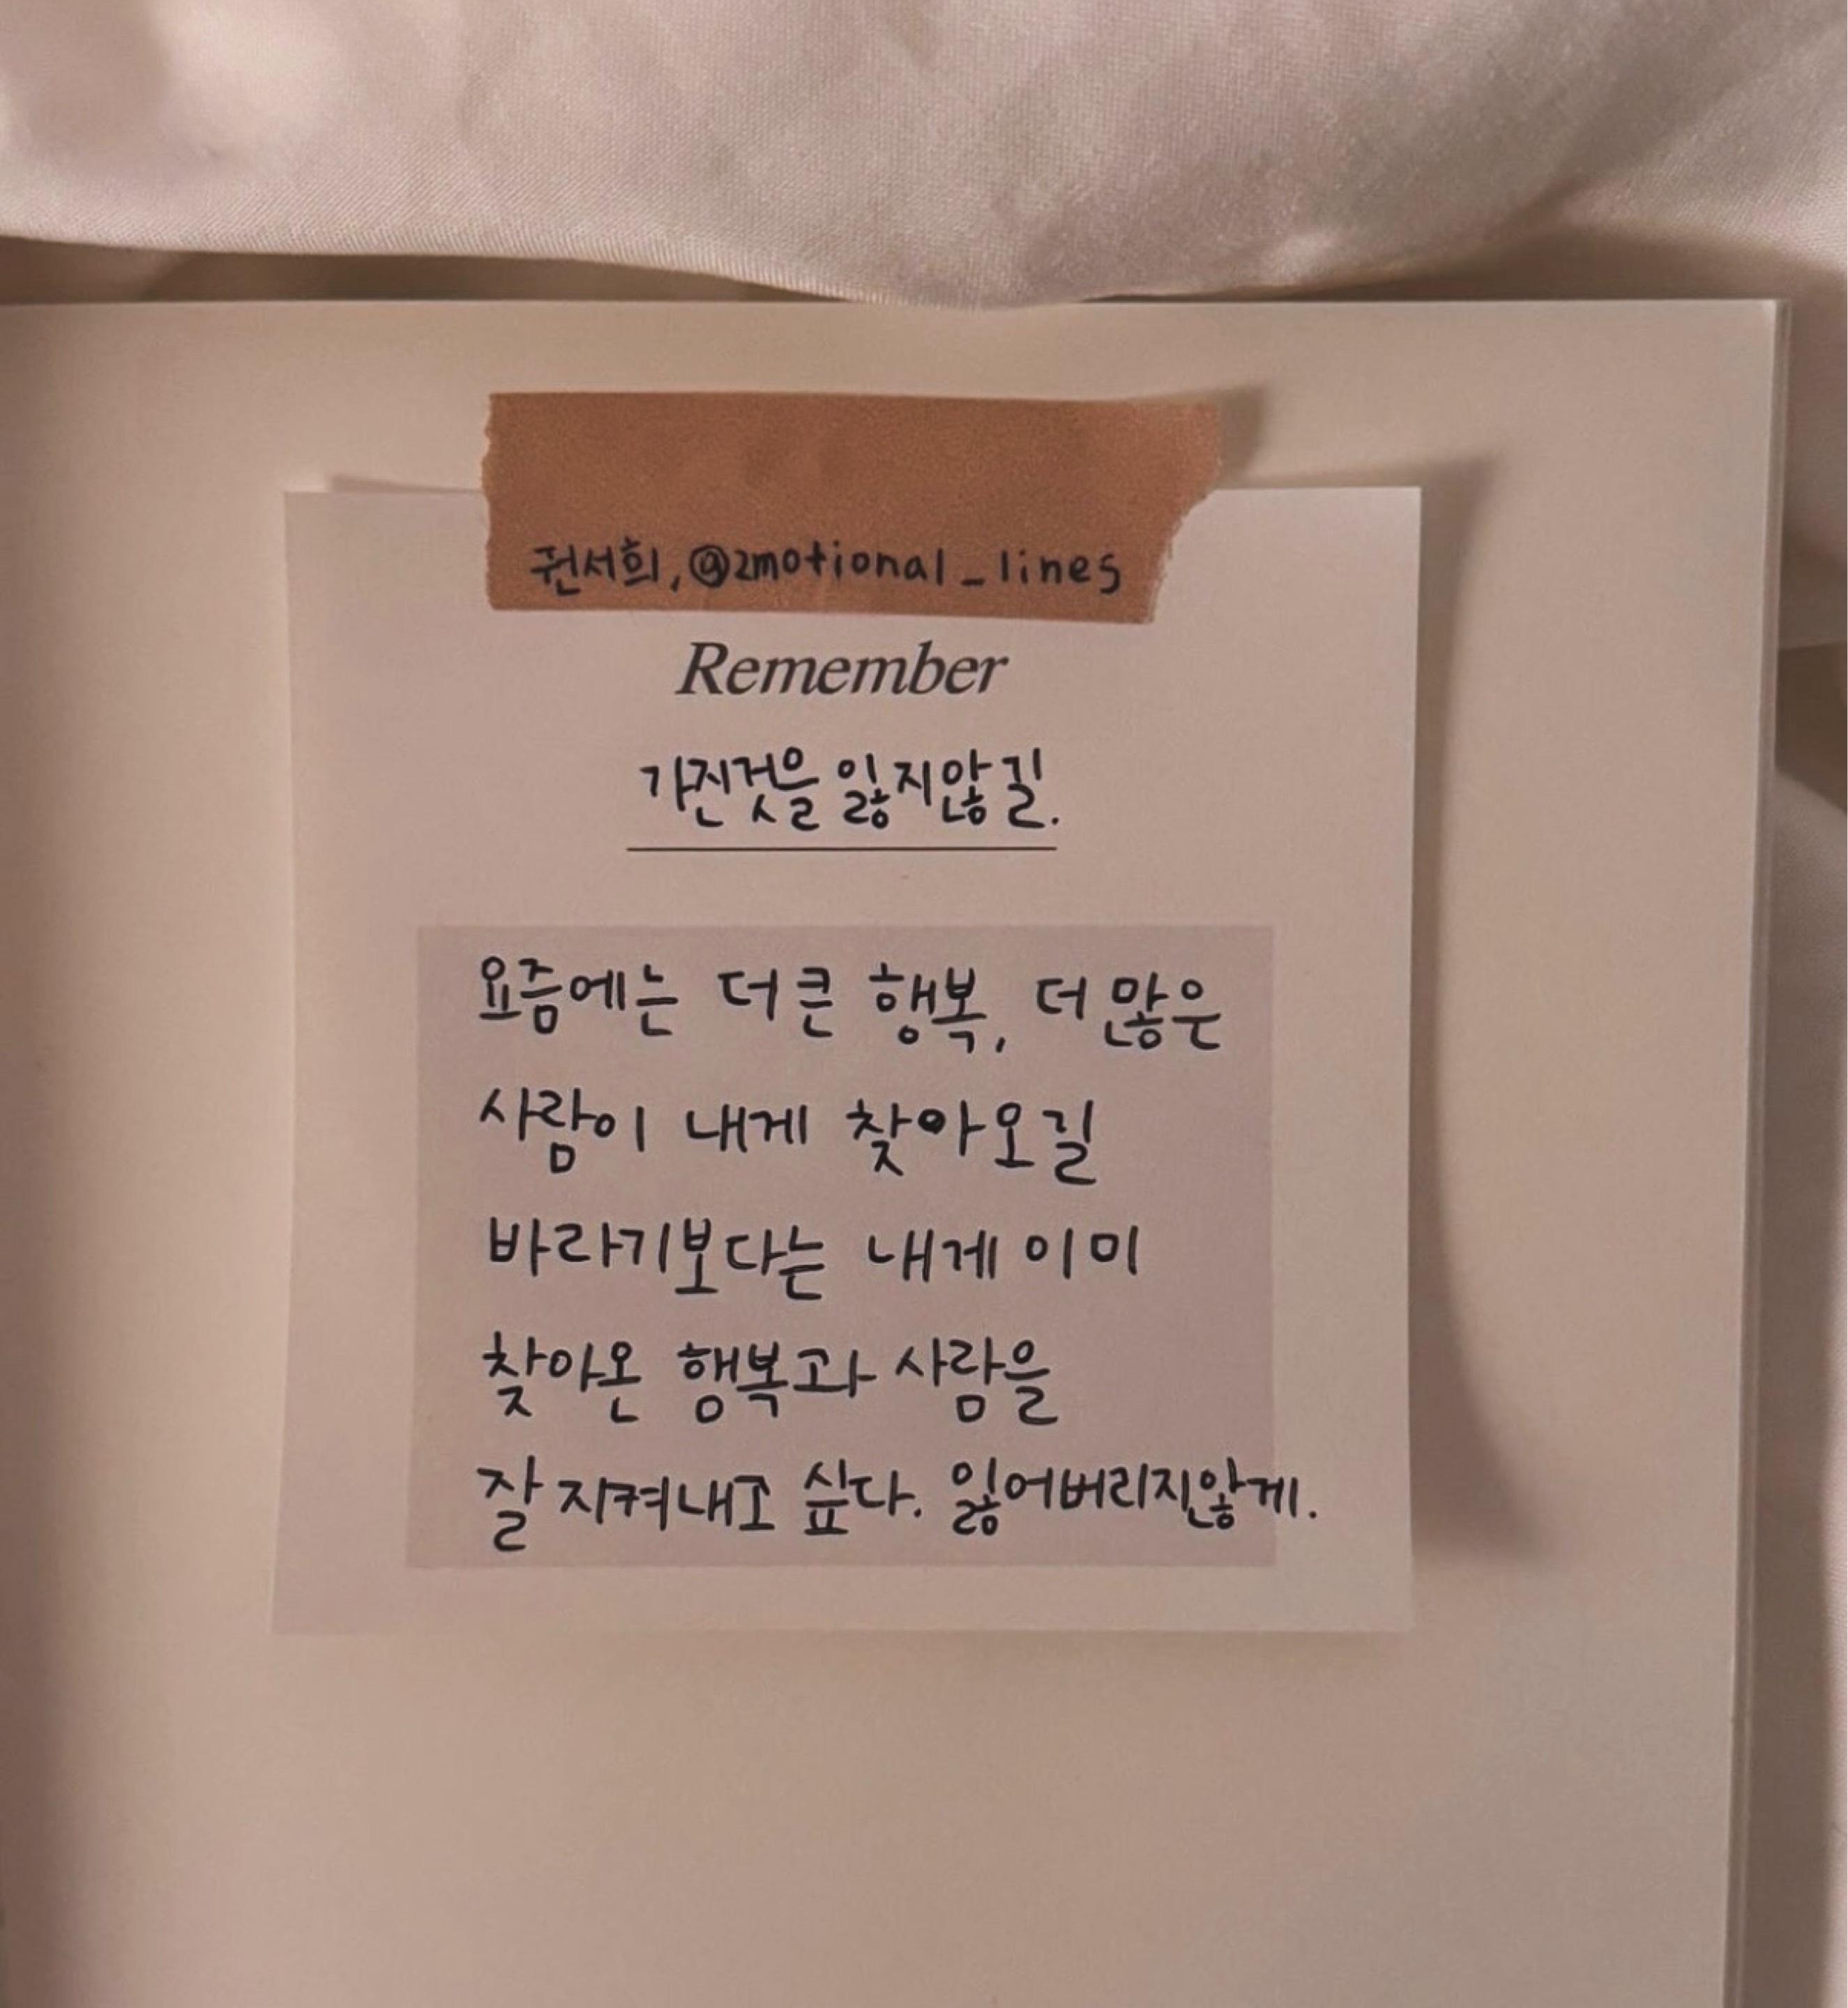 권서희, @2motional_lines
Remember
가진것을 잃지않길.
요즘에는 더 큰 행복, 더 많은
사람이 내게 찾아오길
바라기보다는 내게 이미
찾아온 행복과 사람을
잘 지켜내고 싶다. 잃어버리지않게.